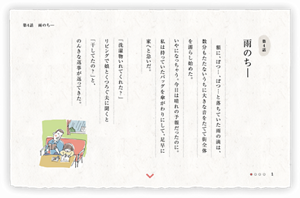 第4話 雨のちー
第4話
雨のちー
頬に、ぽつー、ぽつーと落ちていた雨の滴は、
数分もたたないうちに大きな音をたてて街全体
を濡らし始めた。
いやになっちゃう。今日は晴れの予報だったのに。
私は持っていたバッグを傘がわりにして、足早に
家へと急いだ。
「洗濯物いれてくれた？」
リビングで娘とくつろぐ夫に聞くと
「干してたの？」と、
のんきな返事が返ってきた。
1